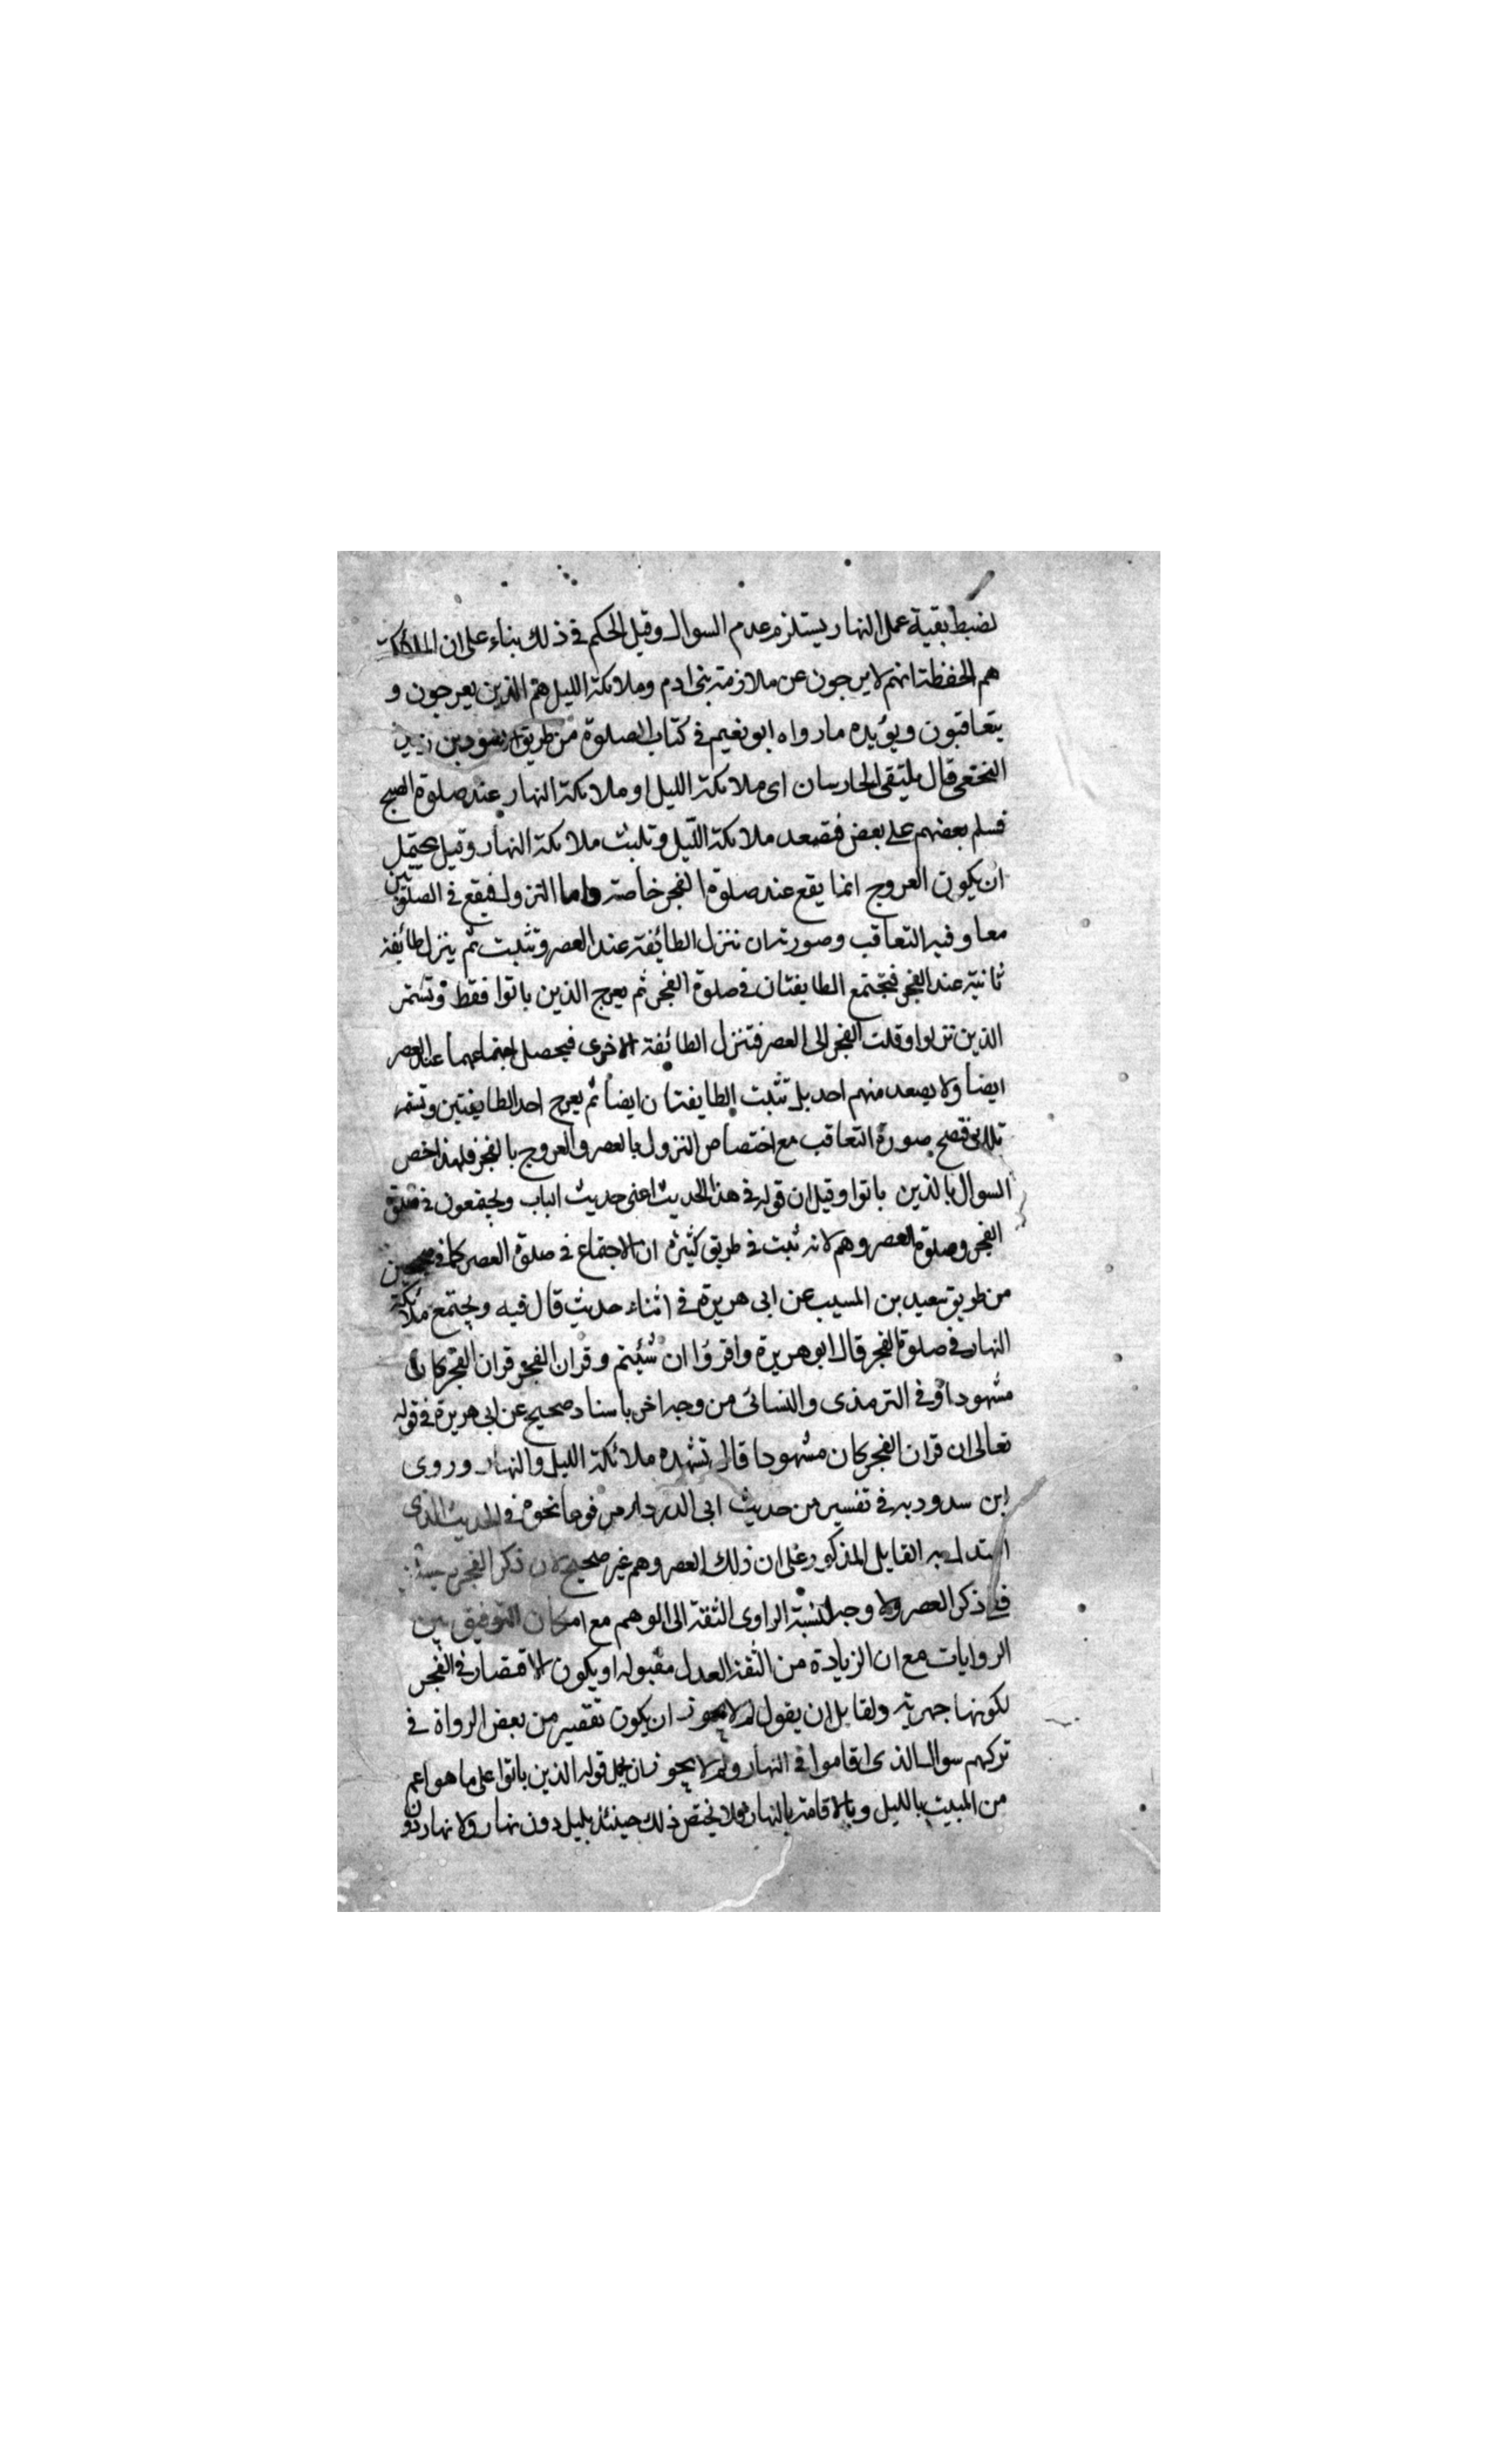 نضبط بقية عمل النهار يستلزم عدم السوال وقيل الحكم فى ذلك بناء على ان الملائكة
هم الحفظة انهم لا يبرجون عن ملازمة بنى ادم وملائكة الليل هم الذين يعرجون و
يتعاقبون ويؤيده مارواه ابو نعيم فى كتاب الصلوة من طريق الاسود بن زيد
النخعى قال يلتقى الحارسان اى ملائكة الليل او ملائكة النهار عند صلوة الصبح
فسلم بعضهم على بعض فتصعد ملائكة الليل وتلبث ملائكة النهار وقيل يحتمل
ان يكون العروج انما يقع عند صلوة الفجر خاصة واما النزول فيقع فى الصلوتين
معا وفيه التعاقب وصورته ان تنزل الطائفة عند العصر وتثبت ثم ينزل طائفة
ثانية عند الفجر فيجتمع الطايفتان فى صلوة الفجر ثم يعرج الذين باتوا فقط وتستمر
الذين نزلوا وقلت الفجر الى العصر فتنزل الطائفة الاخرى فيحصل اجتماعهما عند العصر
ايضا ولا يصعد منهم احد بل تثبت الطايفتان ايضا ثم يعرج احد الطايفتين وتستمر
فتصح صورة التعاقب مع اختصاص النزول بالعصر والعروج بالفجر فلهذا خص
السوال بالذين باتوا وقيل ان قوله فى هذا الحديث اعنى حديث الباب ويجتمعون فى صلوة
الفجر وصلوة العصر وهم لانه ثبت فى طريق كثيرة ان الاجتماع فى صلوة العصر كما فى
من طريق سعيد بن المسيب عن ابى هريرة فى اثناء حديث قال فيه ويجتمع ملائكة
النهار فى صلوة الفجر قال ابو هريرة واقرؤا ان شئتم وقران الفجر قران الفجر كان
مشهودا وفى الترمذى والنسائى من وجه اخر باسناد صحيح عن ابى هريرة فى قوله
تعالى ان قران الفجر كان مشهودا قال تشهده ملائكة الليل والنهار وروى
ابن سدوديه فى تفسيره من حديث ابى الدرداء مرفوعا نحوه فى الحديث الذى
استدل به القايل المذكور على ان ذلك العصر وهم غير صحيح لان ذكر الفجر
ذكر العصر ولا وجه لنسبة الراوى الثقة الى الوهم مع امكان التوفيق بين
الروايات مع ان الزيادة من الثقة العدل مقبولة او يكون الاقتصار فى الفجر
لكونها جهرية ولقايل ان يقول لم لا يجوز ان يكون تقصير من بعض الرواة فى
تركهم سوال الذى اقاموا فى النهار ولم لا يجوز ان يحمل قوله الذين باتوا على ما هو اعم
من المبيت بالليل وبالاقامة بالنهار فلا يختص ذلك حينئذ بليل دون نهار ولا نهار دون